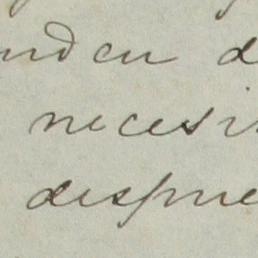 nden d
necesi
despue